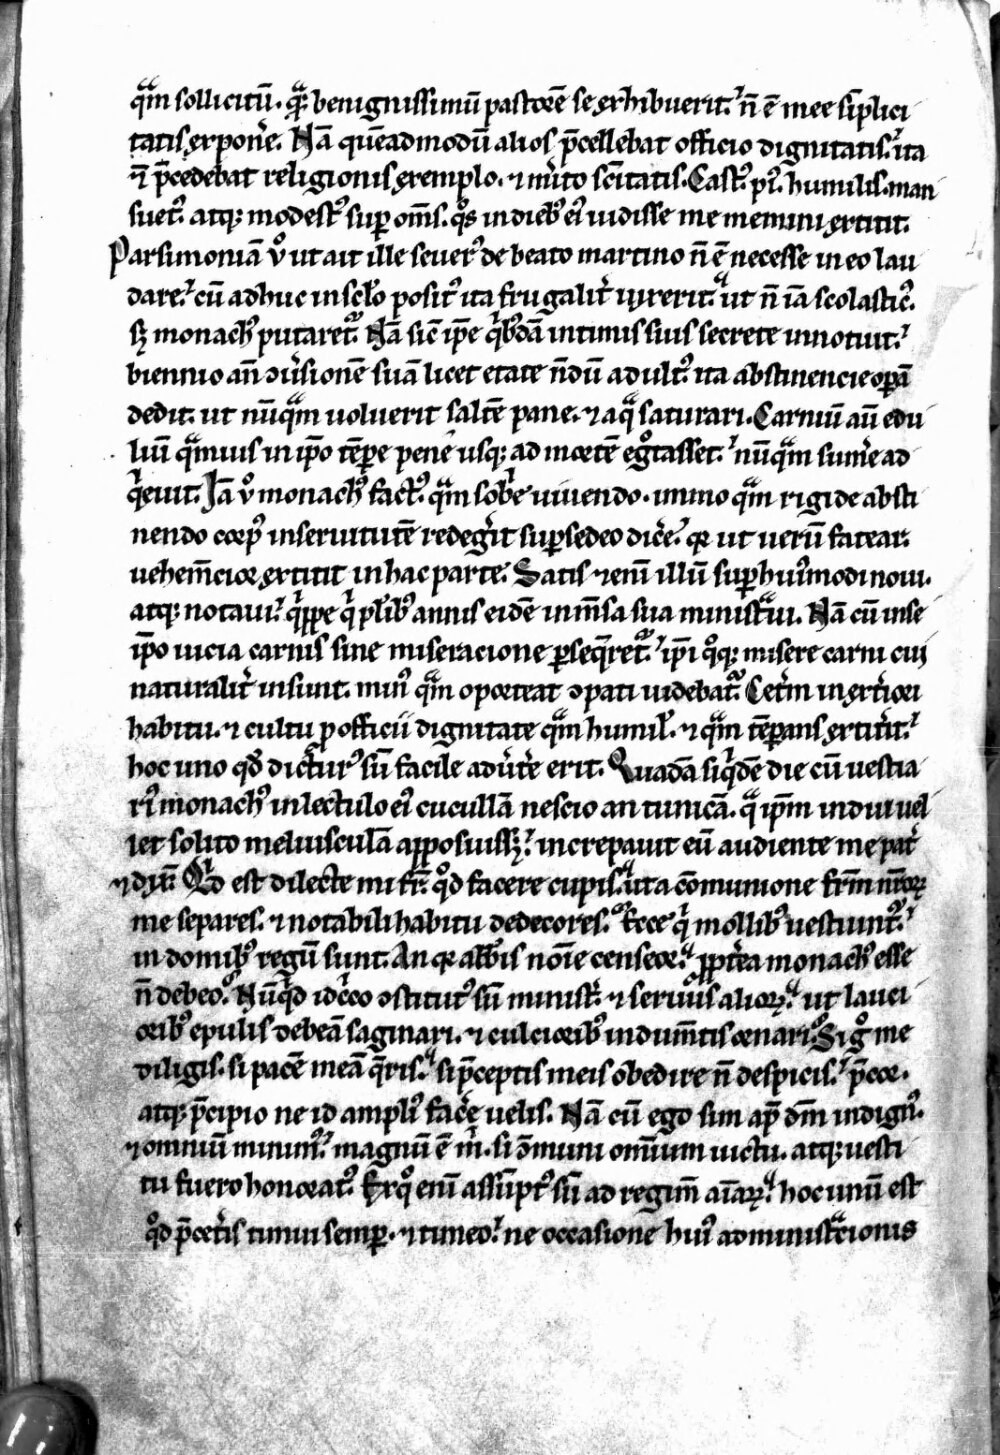 q̄m sollicitū. q̄; benignissimū pastorē se exhibuerit. n̄ ē mee simplici
tatis exponere. Nā quēadmodū alios p̄cellebat officio dignitatis. ita
⁊ p̄cedebat religionis exemplo. ⁊ m̄ito sc̄itatis. Castꝰ piꝰ humilis. man
suetꝰ atq; modestꝰ suꝑ om̄s. q̊s in diebꝫ eiꝰ uidisse me memini extitit.
Parsimoniā ů ut ait ille seuerꝰ de beato martino n̄ ē necesse in eo lau
dare. cū adhuc in sc̄lo positꝰ ita frugalit̾ uixerit. ut n̄ iā scolasticꝰ
sꝫ monachꝰ putaret̾. Nā sic̄ ip̄e qⁱbꝰdā intimis suis secrete innotuit.
biennio an̄ ꝯuersionē suā licet etate n̄dū adultꝰ ita abstinencie oꝑā
dedit. ut nūq̄m uoluerit saltē pane. ⁊ aq̄ saturari. Carniū aū edu
liū q̄muis in ip̄o tēꝑe pene usq; ad mortē egrotasset. nūq̄m sum̄e ad
qⁱeuit. Iā ů monachꝰ factꝰ. q̄m sobⁱe uiuendo. immo q̄m rigide absti
nendo corpꝰ in seruitutē redegit suꝑsedeo dic̄e. qr ut uerū fatear.
uehem̄cior extitit in hac parte. Satis eteni illū suꝑ huiꝰmodi noui.
atq; notaui. qⁱppe qⁱ pl̄ibꝰ annis eidē in m̄sa sua ministᵃui. Nā cū in se
ip̄o uicia carnis sine miseracione ꝑseq̄ret̾. ip̄i q̊q; misere carni cui
naturalit̾ insunt. minꝰ q̄m oporteat ꝯpati uidebat̾. Cet̾m in ext̾iori
habitu. ⁊ cultu ꝓ officii dignitate q̄m humil̾. ⁊ q̄m tēꝑans extit̾it.
hoc uno qd̾ dict̾urꝰ sū facile aduert̾e erit. Quadā siqⁱdē die cū uestia
riꝰ monachꝰ in lectulo eiꝰ cucullā nescio an tunicā. q̄ ip̄m indui uel
let solito meliusculā apposuissꝫ. increpauit eū audiente me pat̾
⁊ dix̄. Qⁱd est dilecte mi fr̄. q̊d facere cupis. ut a cōmunione fr̄m nr̄orꝝ
me separes. ⁊ notabili habitu dedecores. Ecce qⁱ mollibꝰ uestiunt̾.
in domibꝰ regū sunt. An qr abb̄is noīe censeor. ꝓpt̾ea monachꝰ esse
n̄ debeo. Nūqⁱd idc̾co ꝯstitutꝰ sū minist̾. ⁊ seruꝰ uis aliorꝝ. ut lauci
oribꝰ epulis debeā saginari. ⁊ culcioribꝰ indum̄tis ornari. Si g̊ me
diligis. si pacē meā q̄ris. si p̄ceptis meis obedire n̄ despicis. p̄cor.
atq; p̄cipio ne id ampliꝰ fac̄e uelis. Nā cū ego sim ap̄ dm̄ indignꝰ.
⁊ omniū minimꝰ. magnū ē m̄. si ꝯmuni omniū uictu. atq; uesti
tu fuero honoratꝰ. Ex q̊ enī assūptꝰ sū ad regim̄ aīarꝝ. hoc unū est
q̊d p̄ cet̾is timui semꝑ. ⁊ timeo. ne occasione huiꝰ administᵃcionis